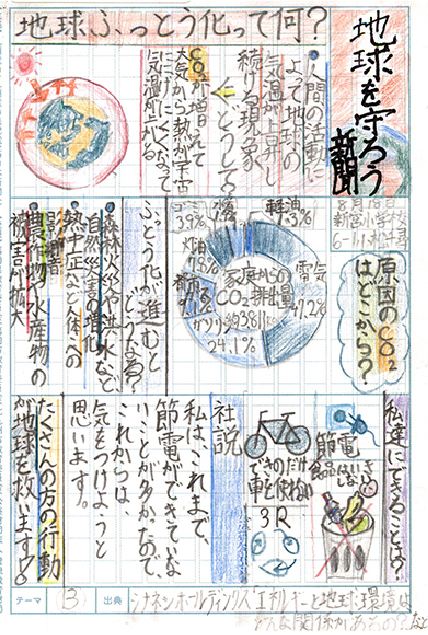 地球を守ろう
新聞
地球ふっとう化って何?
●人間の活動に
よって地球の
気温が上昇し
続ける現象
<どうして?
CO2が増えて
大気から熱が宇宙
ににげにくくなって
気温が上がる
8月18日
新宮小学校
原因のCO2
はどこから?
家庭からの
CO2排出量
電気
47.2%
ガソリン
24.1%
都市ガス
灯油
7.8%
ゴミ
3.9%
水道
軽油
1.3%
ふっとう化が進むと
どうなる?
●森林火災や洪水など
自然災害の増加
●熱中症など人体への
影響
●農作物や水産物の
被害が拡大
私達にできることは?
節電
食品
できるだけ
車を使わない
3R
社説
私は、これまで、
節電ができていな
いことが多かったので、
これからは、
気をつけようと
思います。
たくさんの方の行動
が地球を救います!
テーマ
③
出典
シナネンホールディングス「エネルギーと地球環境は
どんな関係があるの?」など